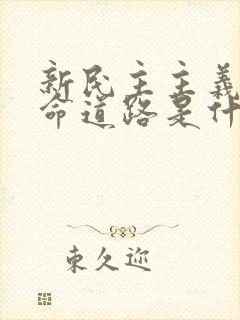 新民主主義
命道路是什
東久迩